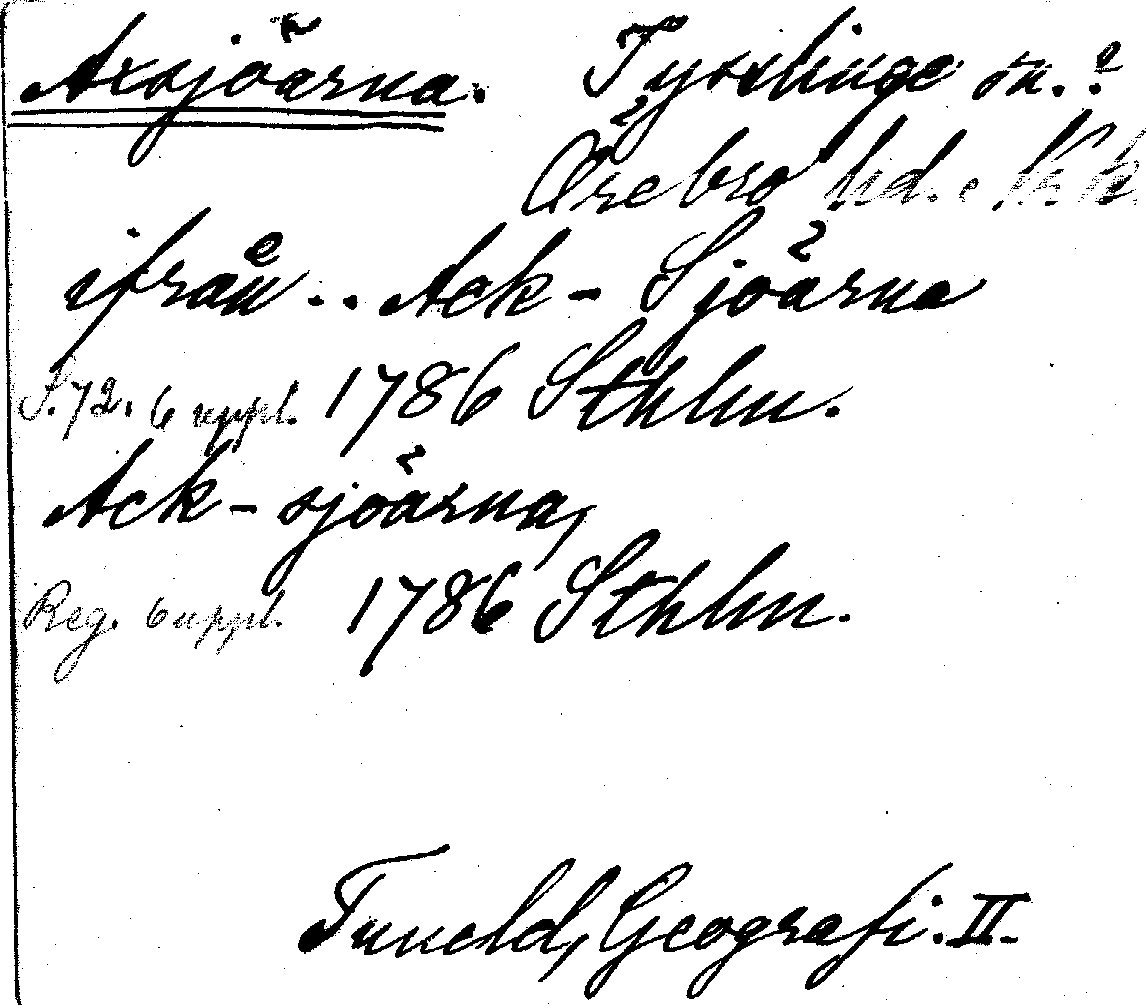 Axsjöarna. Tysslinge sn.?
Örebro hd.
ifrån .. Ack-Sjöarna
S. 72. 6 uppl. 1786 Sthlm.
Ack-sjöarna,
Reg. 6 uppl. 1786 Sthlm.
Tuneld, Geografi. II.